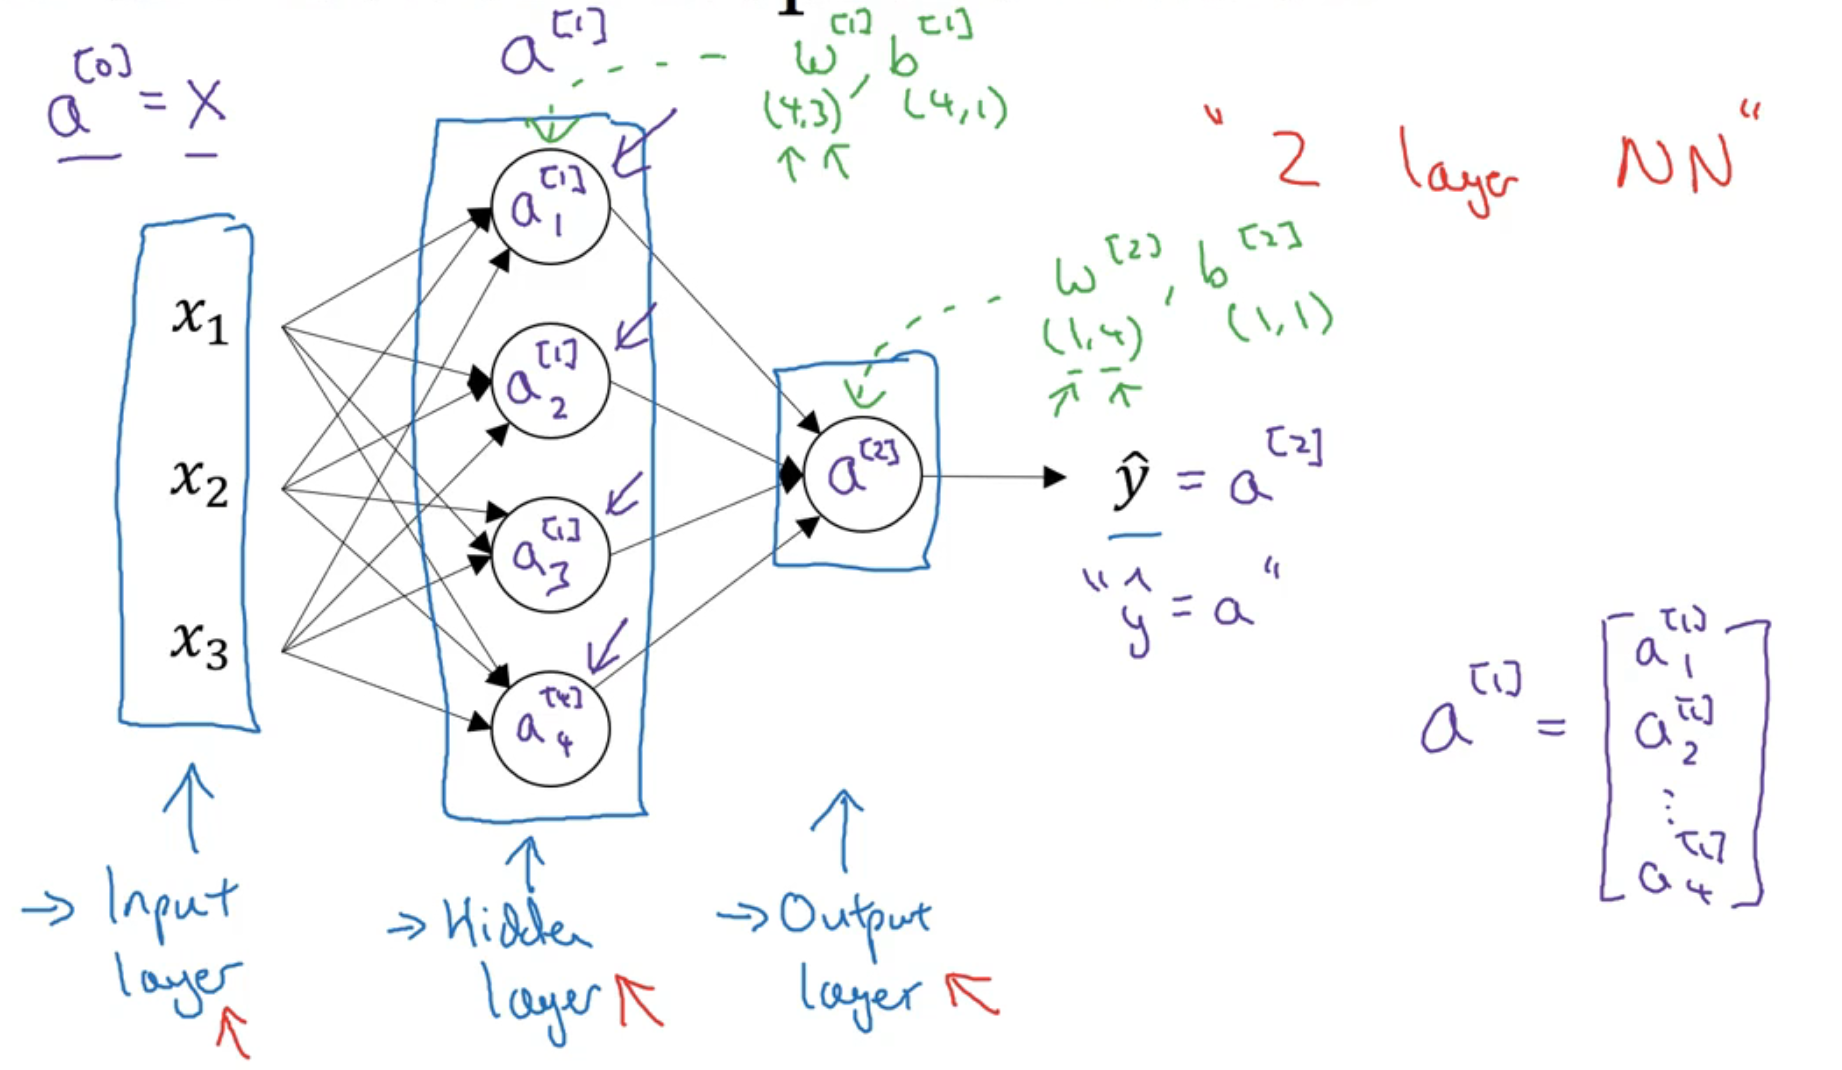 a^[0] = X
a^[1]
w^[1], b^[1]
(4,3) (4,1)
"2 layer NN"
x₁
x₂
x₃
a₁^[1]
a₂^[1]
a₃^[1]
a₄^[4]
w^[2], b^[2]
(1,4) (1,1)
a^[2]
ŷ = a^[2]
"ŷ = a"
a^[1] = [
a₁^[1]
a₂^[1]
⋮
a₄^[1]
]
→ Input
layer
→ Hidden
layer
→ Output
layer